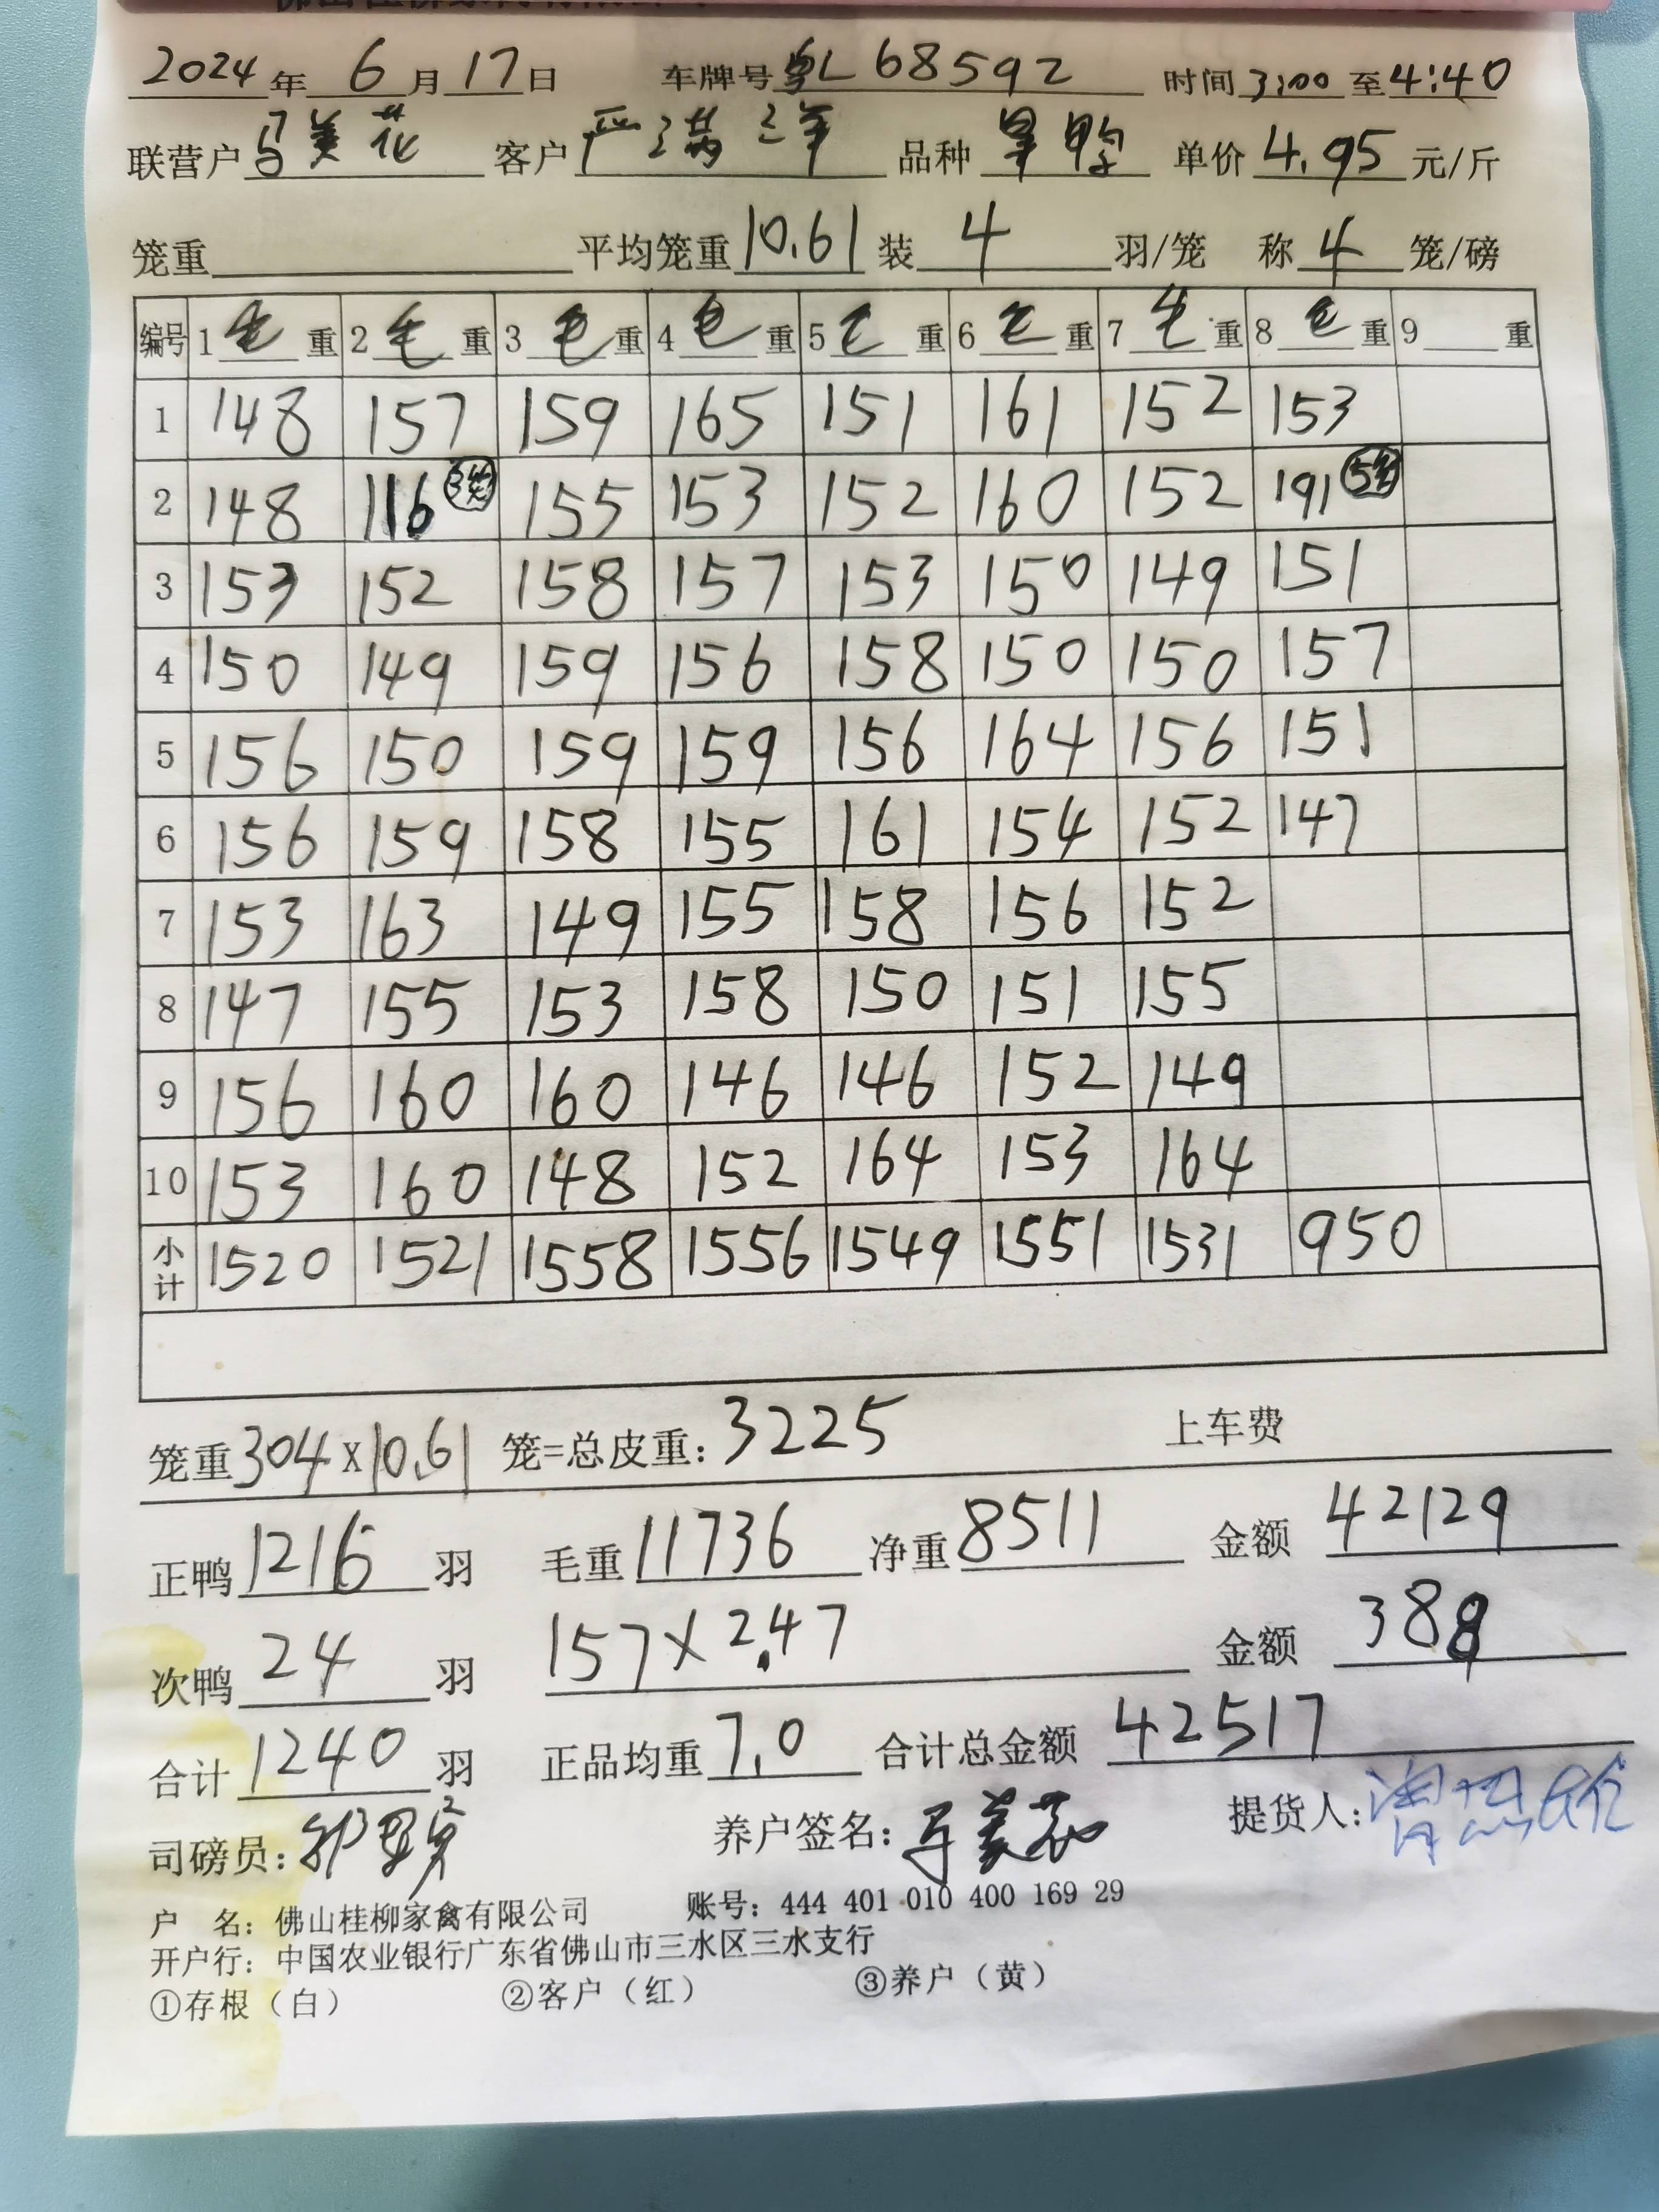 2024年 6月17日 车牌号 粤L68592 时间 3:00 至 4:40
联营户 马美花 客户 严满 品种 旱鸭 单价 4.95 元/斤
笼重 平均笼重 10.61 装 4 羽/笼 称 4 笼/磅
编号 1 毛 重 2 毛 重 3 毛 重 4 毛 重 5 毛 重 6 毛 重 7 毛 重 8 毛 重 9 重
1 148 157 159 165 151 161 152 153
2 148 116 3笼 155 153 152 160 152 191 5笼
3 153 152 158 157 153 150 149 151
4 150 149 159 156 158 150 150 157
5 156 150 159 159 156 164 156 151
6 156 159 158 155 161 154 152 147
7 153 163 149 155 158 156 152
8 147 155 153 158 150 151 155
9 156 160 160 146 146 152 149
10 153 160 148 152 164 153 164
小计 1520 1521 1558 1556 1549 1551 1531 950
笼重 304 x 10.61 笼=总皮重: 3225 上车费
正鸭 1216 羽 毛重 11736 净重 8511 金额 42129
次鸭 24 羽 157 x 2.47 金额 388
合计 1240 羽 正品均重 7.0 合计总金额 42517
司磅员: 养户签名: 马美花 提货人:
户 名: 佛山桂柳家禽有限公司 账号: 444 401 010 400 169 29
开户行: 中国农业银行广东省佛山市三水区三水支行
①存根(白) ②客户(红) ③养户(黄)